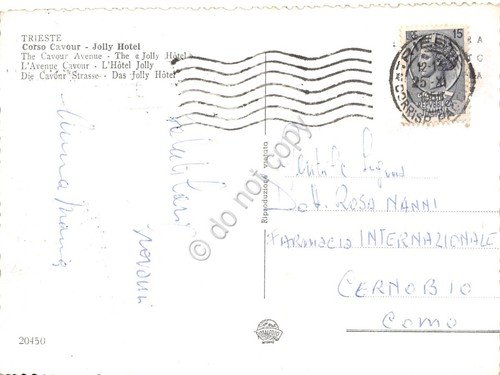 TRIESTE
Corso Cavour - Jolly Hotel
The Cavour Avenue - The « Jolly Hôtel »
L'Avenue Cavour - L'Hôtel Jolly
Die Cavour Strasse - Das Jolly Hôtel
15
Saluti cari
Anna Maria
Giovanni
Riproduzione vietata
do not copy
Gent.le Signora
Dott. ROSA NANNI
FARMACIA INTERNAZIONALE
CERNOBIO
COMO
20450